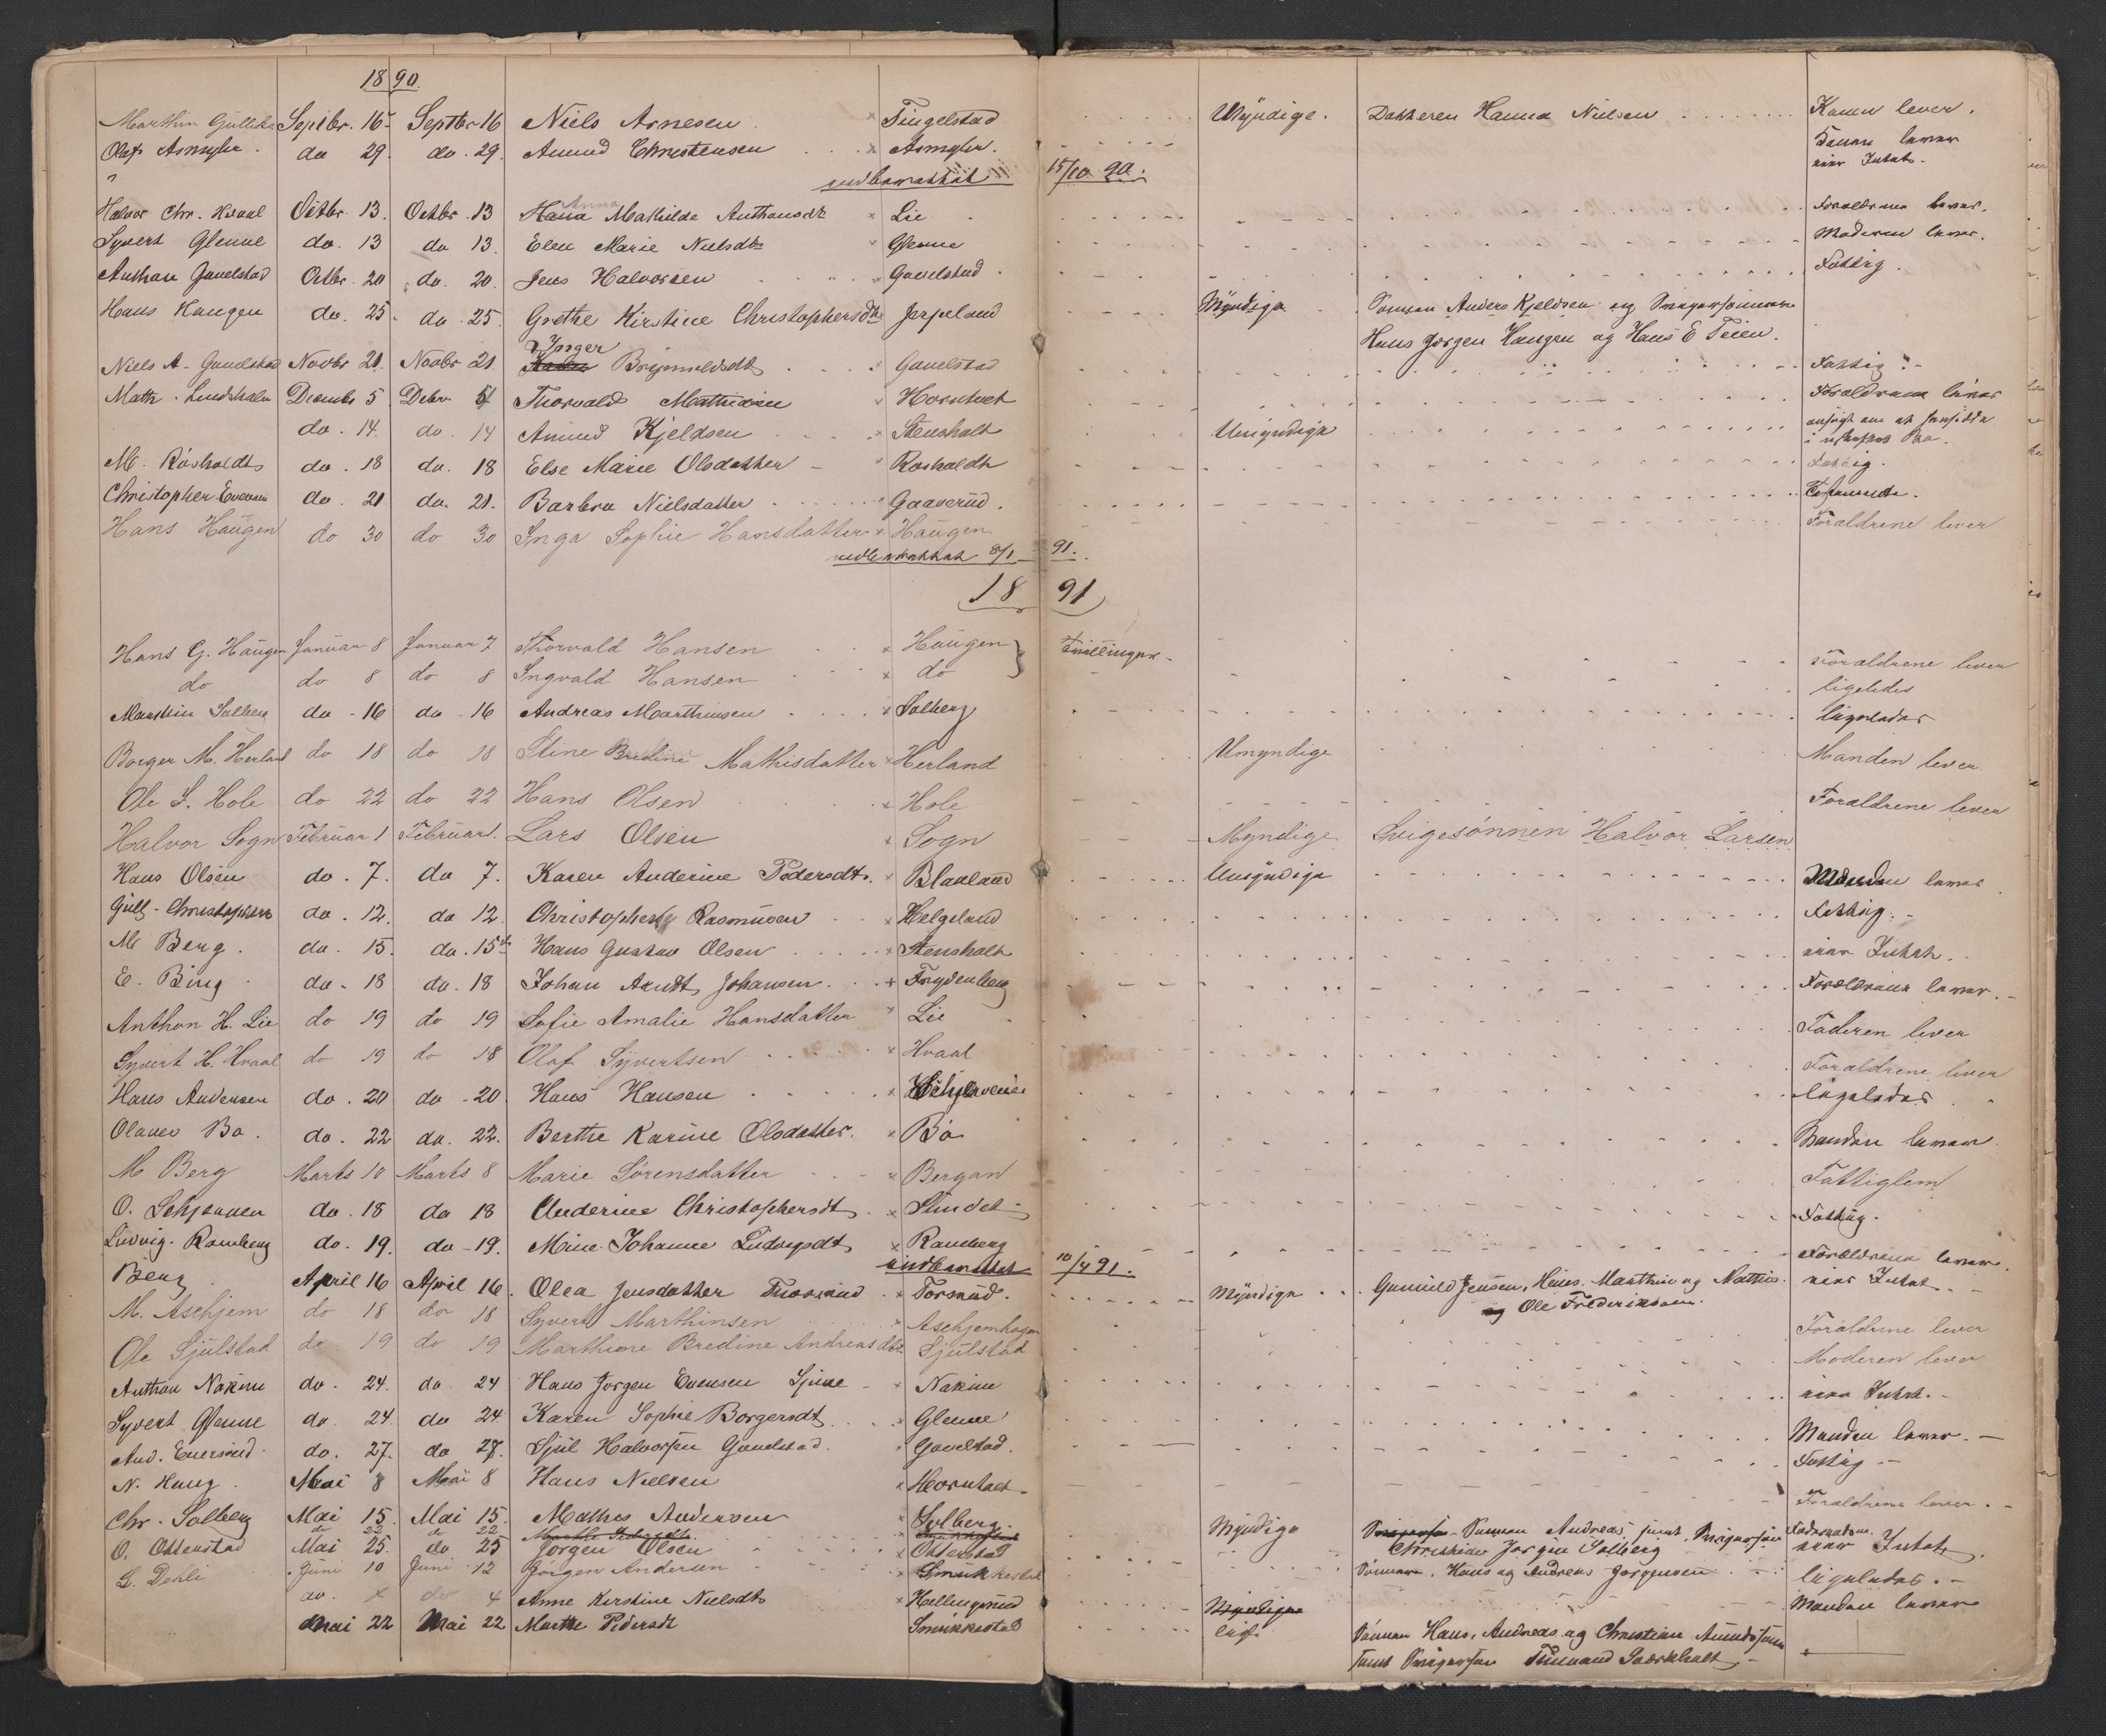 1890.
Marthin Gulliks Septbr. 16 Septbr 16 Niels Arnesen × Tingelstad Myndige. Datteren Hanna Nielsen Konen lever.
Olaf Asmyhr. do 29. do. 29. Amund Christensen × Asmyhr. Konen lever
15/10 90. eier Intet.
Halvor Chr. Hvaal Octbr. 13. Octbr. 13 Hana Anna Mathilde Anthonsdt × Lie Forældrene lever.
Syvert Glenne do. 13 do 13. Elen Marie Nielsdt × Glenne Moderen lever.
Anthon Gavelstad Octbr. 20 do. 20. Jens Halvorsen × Gavelstad Fattig.
Hans Haugen do. 25. do. 25. Grethe Kirstine Christophersdt Jerpeland Myndige Sønnen Anders Kjeldsen og Svigersønnerne
Hans Jørgen Haugen og Hans E Teien.
Niels A. Gavelstad Novbr 21. Novbr 21 Inger Brynnildsdt Gavelstad Fattig
Math. Lindsholm Decembr 5 Debr 5 Thorvald Mathisen Horntvet Forældrene lever
do. 14. do. 14 Amund Kjeldsen Stensholt Umyndige ansøgt om at hensidde
i uskiftet Bo.
M. Rosholdt do. 18 do. 18 Else Marie Olsdatter Rosholdt Fattig.
Christopher Evensen do. 21 do. 21. Barbra Nielsdatter Gaaserud. Testamente.
Hans Haugen do 30 do 30 Inga Sophie Hansdatter × Haugen Forældrene lever
8/1 91.
1891
Hans G. Haugen Januar 8 Januar 7 Thorvald Hansen × Haugen Tvillinger Forældrene lever
do do 8 do 8 Ingvald Hansen × do ligeledes
Marthin Solberg do 16 do 16 Andreas Marthinsen × Solberg ligeledes
Borger M. Herland do 18 do 18 Stine Bredine Mathisdatter × Herland Umyndige Manden lever
Ole S. Hole do 22 do 22 Hans Olsen × Hole Forældrene lever
Halvor Sogn Februar 1 Februar 1. Lars Olsen × Sogn Myndige Svigesønnen Halvor Larsen
Hans Olsen do. 7. do 7. Karen Anderine Pedersdt. × Blaaland Umyndige Manden lever
Gull. Christophers do. 12. do 12. Christopher Rasmusen × Helgeland Fattig.
M Berg. do. 15. do. 15 Hans Gustav Olsen × Stensholt eier Intet.
E. Bing do. 18 do. 18 Johan Arndt Johansen × Frydenberg Forældrene lever.
Anthon H. Lie do 19 do 19 Sofie Amalie Hansdatter × Lie Faderen lever
Syvert H. Hvaal do 19 do 18 Olaf Syvertsen × Hvaal Forældrene lever
Hans Andersen do. 20 do. 20 Hans Hansen × ligeledes
Olaves Bø. do. 22 do. 22. Berthe Karine Olsdatter. × Bø Manden lever
M Berg Marts 10 Marts 8 Marie Sørensdatter × Bergan Fattiglem
O. Schjerven do. 18 do 18 Anderine Christophersdt × Stu­det Fattig.
Ludvig Ramberg do. 19. do. 19. Mine Johanne Ludvigsdt × Ramberg Forældrene lever.
10/4 91.
Berg April 16 April 16. Olea Jensdatter Thorsrud Torsrud. Myndige Gunnild Jensen, Hans, Marthin og Mathis eier Intet
og Ole Frederiksen.
M. Aschjem do 18 do 18 Syvert Marthinsen × Aschjemhagen Forældrene lever
Ole Sjulstad do 19 do 19 Marthine Bredine Andreasdtr. Sjulstad Moderen lever
Anthon Nakim do. 24. do. 24 Hans Jørgen Evensen × Nakim eier Intet.
Syvert Glenne do. 24. do 24 Karen Sophie Borgersdt × Glenne Manden lever.
And. Eversrud do. 27. do 27. Sjul Halvorsen Gavelstad Gavelstad. Fattig
N. Haug. Mai 8 Mai 8 Hans Nielsen × Horntvet Forældrene lever.
Chr. Solberg Mai 15. Mai 15. Mathis Andersen × Solberg. Myndige Sønnen Andreas, samt Svigersøn
do 22 do 22 Marthe Pedersdt. Christian Jørgen Solberg
O. Ottenstad Mai 25. do 25 Jørgen Olsen × Ottenstad eier Intet.
G. Dehli Juni 10 Juni 12 Jørgen Andersen Sønnerne, Hans og Andreas Jørgensen ligeledes.
do. × do 4 Anne Kirstine Nielsdt × Hellingsrud Myndige Manden lever
Mai 22 Mai 22 Marthe Pedersdt Smukkestad Sønner Hans, Andreas og Christian Amundsen
samt Svigersøn